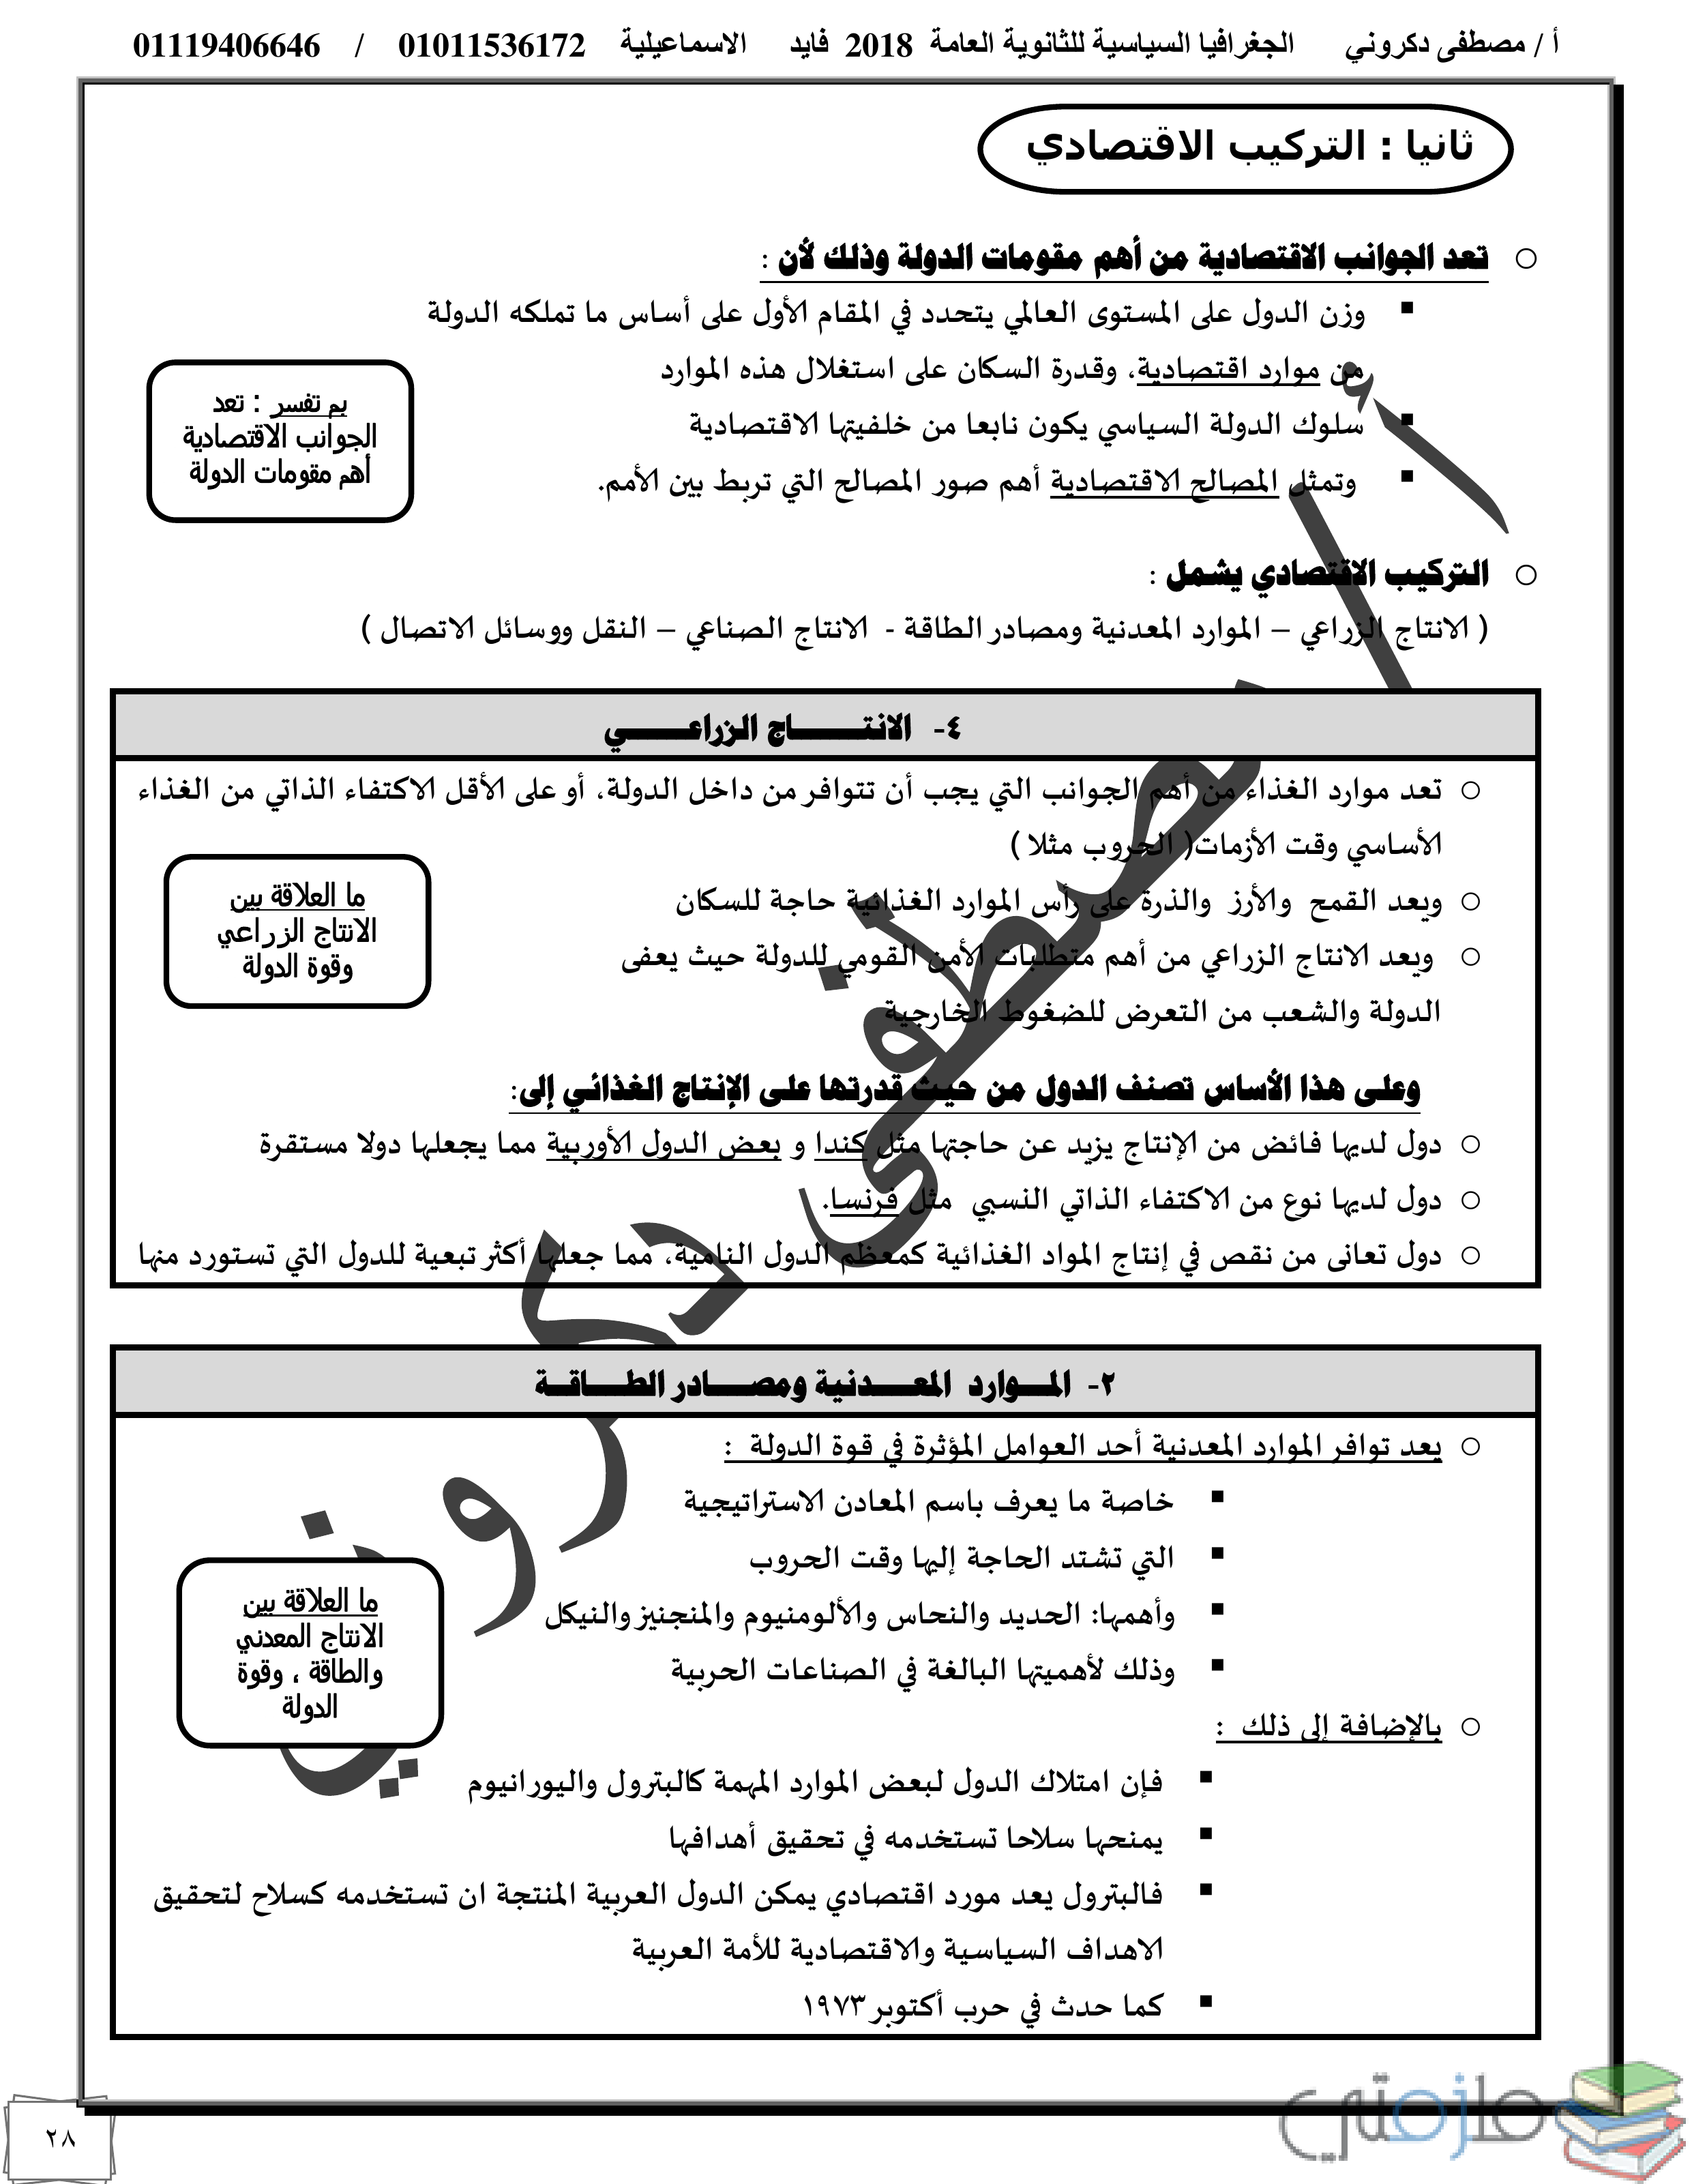 أ / مصطفى دكروني الجغرافيا السياسية للثانوية العامة 2018 فايد الاسماعيلية 01011536172 / 01119406646
ثانيا : التركيب الاقتصادي
تعد الجوانب الاقتصادية من أهم مقومات الدولة وذلك لأن :
وزن الدول على المستوى العالمي يتحدد في المقام الأول على أساس ما تملكه الدولة
من موارد اقتصادية، وقدرة السكان على استغلال هذه الموارد
سلوك الدولة السياسي يكون نابعا من خلفيتها الاقتصادية
وتمثل المصالح الاقتصادية أهم صور المصالح التي تربط بين الأمم.
بم تفسر : تعد
الجوانب الاقتصادية
أهم مقومات الدولة
التركيب الاقتصادي يشمل :
( الانتاج الزراعي – الموارد المعدنية ومصادر الطاقة - الانتاج الصناعي – النقل ووسائل الاتصال )
٤- الانتـــــــاج الزراعـــــــي
تعد موارد الغذاء من أهم الجوانب التي يجب أن تتوافر من داخل الدولة، أو على الأقل الاكتفاء الذاتي من الغذاء
الأساسي وقت الأزمات( الحروب مثلا )
ويعد القمح والأرز والذرة على رأس الموارد الغذائية حاجة للسكان
ويعد الانتاج الزراعي من أهم متطلبات الأمن القومي للدولة حيث يعفى
الدولة والشعب من التعرض للضغوط الخارجية
ما العلاقة بين
الانتاج الزراعي
وقوة الدولة
وعلى هذا الأساس تصنف الدول من حيث قدرتها على الإنتاج الغذائي إلى:
دول لديها فائض من الإنتاج يزيد عن حاجتها مثل كندا و بعض الدول الأوربية مما يجعلها دولا مستقرة
دول لديها نوع من الاكتفاء الذاتي النسبي مثل فرنسا.
دول تعانى من نقص في إنتاج المواد الغذائية كمعظم الدول النامية، مما جعلها أكثر تبعية للدول التي تستورد منها
٢- المــوارد المعــــدنية ومصــــادر الطــــاقــة
يعد توافر الموارد المعدنية أحد العوامل المؤثرة في قوة الدولة :
خاصة ما يعرف باسم المعادن الاستراتيجية
التي تشتد الحاجة إليها وقت الحروب
وأهمها: الحديد والنحاس والألومنيوم والمنجنيز والنيكل
وذلك لأهميتها البالغة في الصناعات الحربية
ما العلاقة بين
الانتاج المعدني
والطاقة ، وقوة
الدولة
بالإضافة إلى ذلك :
فإن امتلاك الدول لبعض الموارد المهمة كالبترول واليورانيوم
يمنحها سلاحا تستخدمه في تحقيق أهدافها
فالبترول يعد مورد اقتصادي يمكن الدول العربية المنتجة ان تستخدمه كسلاح لتحقيق
الاهداف السياسية والاقتصادية للأمة العربية
كما حدث في حرب أكتوبر ١٩٧٣
أ / مصطفى دكروني
ملزمتي
٢٨